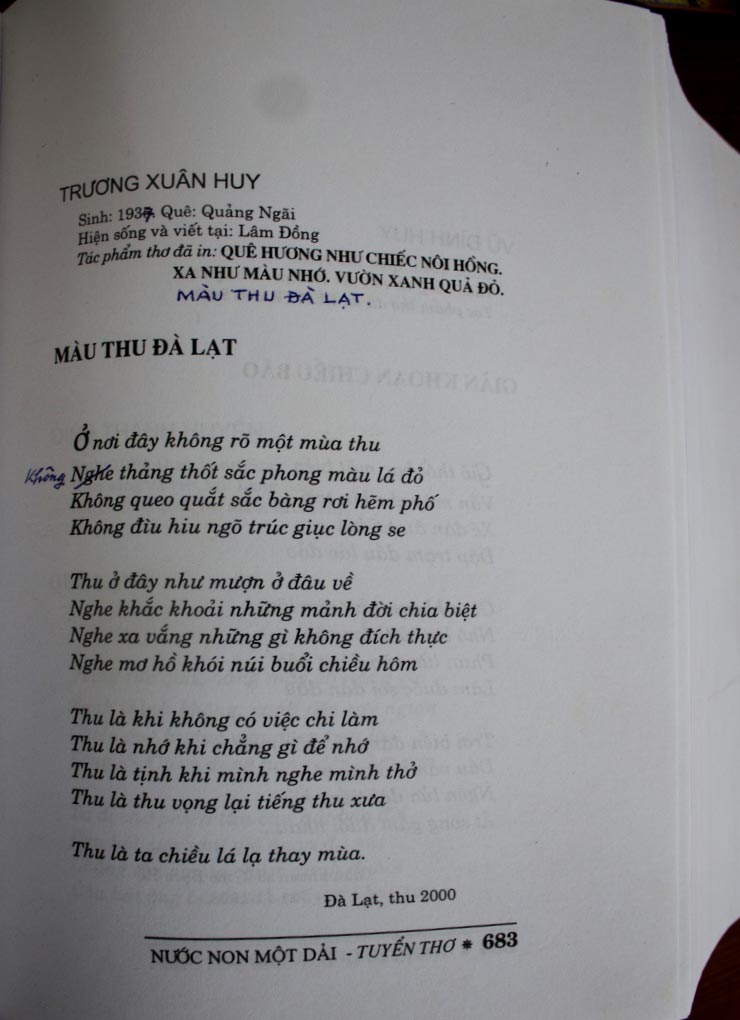 TRƯƠNG XUÂN HUY
Sinh: 1937. Quê: Quảng Ngãi
Hiện sống và viết tại: Lâm Đồng
Tác phẩm thơ đã in: QUÊ HƯƠNG NHƯ CHIẾC NÔI HỒNG.
XA NHƯ MÀU NHỚ. VƯỜN XANH QUẢ ĐỎ.
MÀU THU ĐÀ LẠT.
MÀU THU ĐÀ LẠT
Ở nơi đây không rõ một mùa thu
Không Nghe thảng thốt sắc phong màu lá đỏ
Không queo quắt sắc bàng rơi hẽm phố
Không đìu hiu ngõ trúc giục lòng se
Thu ở đây như mượn ở đâu về
Nghe khắc khoải những mảnh đời chia biệt
Nghe xa vắng những gì không đích thực
Nghe mơ hồ khói núi buổi chiều hôm
Thu là khi không có việc chi làm
Thu là nhớ khi chẳng gì để nhớ
Thu là tịnh khi mình nghe mình thở
Thu là thu vọng lại tiếng thu xưa
Thu là ta chiều lá lạ thay mùa.
Đà Lạt, thu 2000
NƯỚC NON MỘT DẢI - TUYỂN THƠ * 683